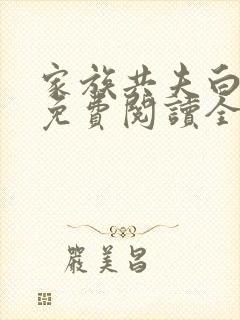 家族共夫白
免費閱讀全
嚴美昌